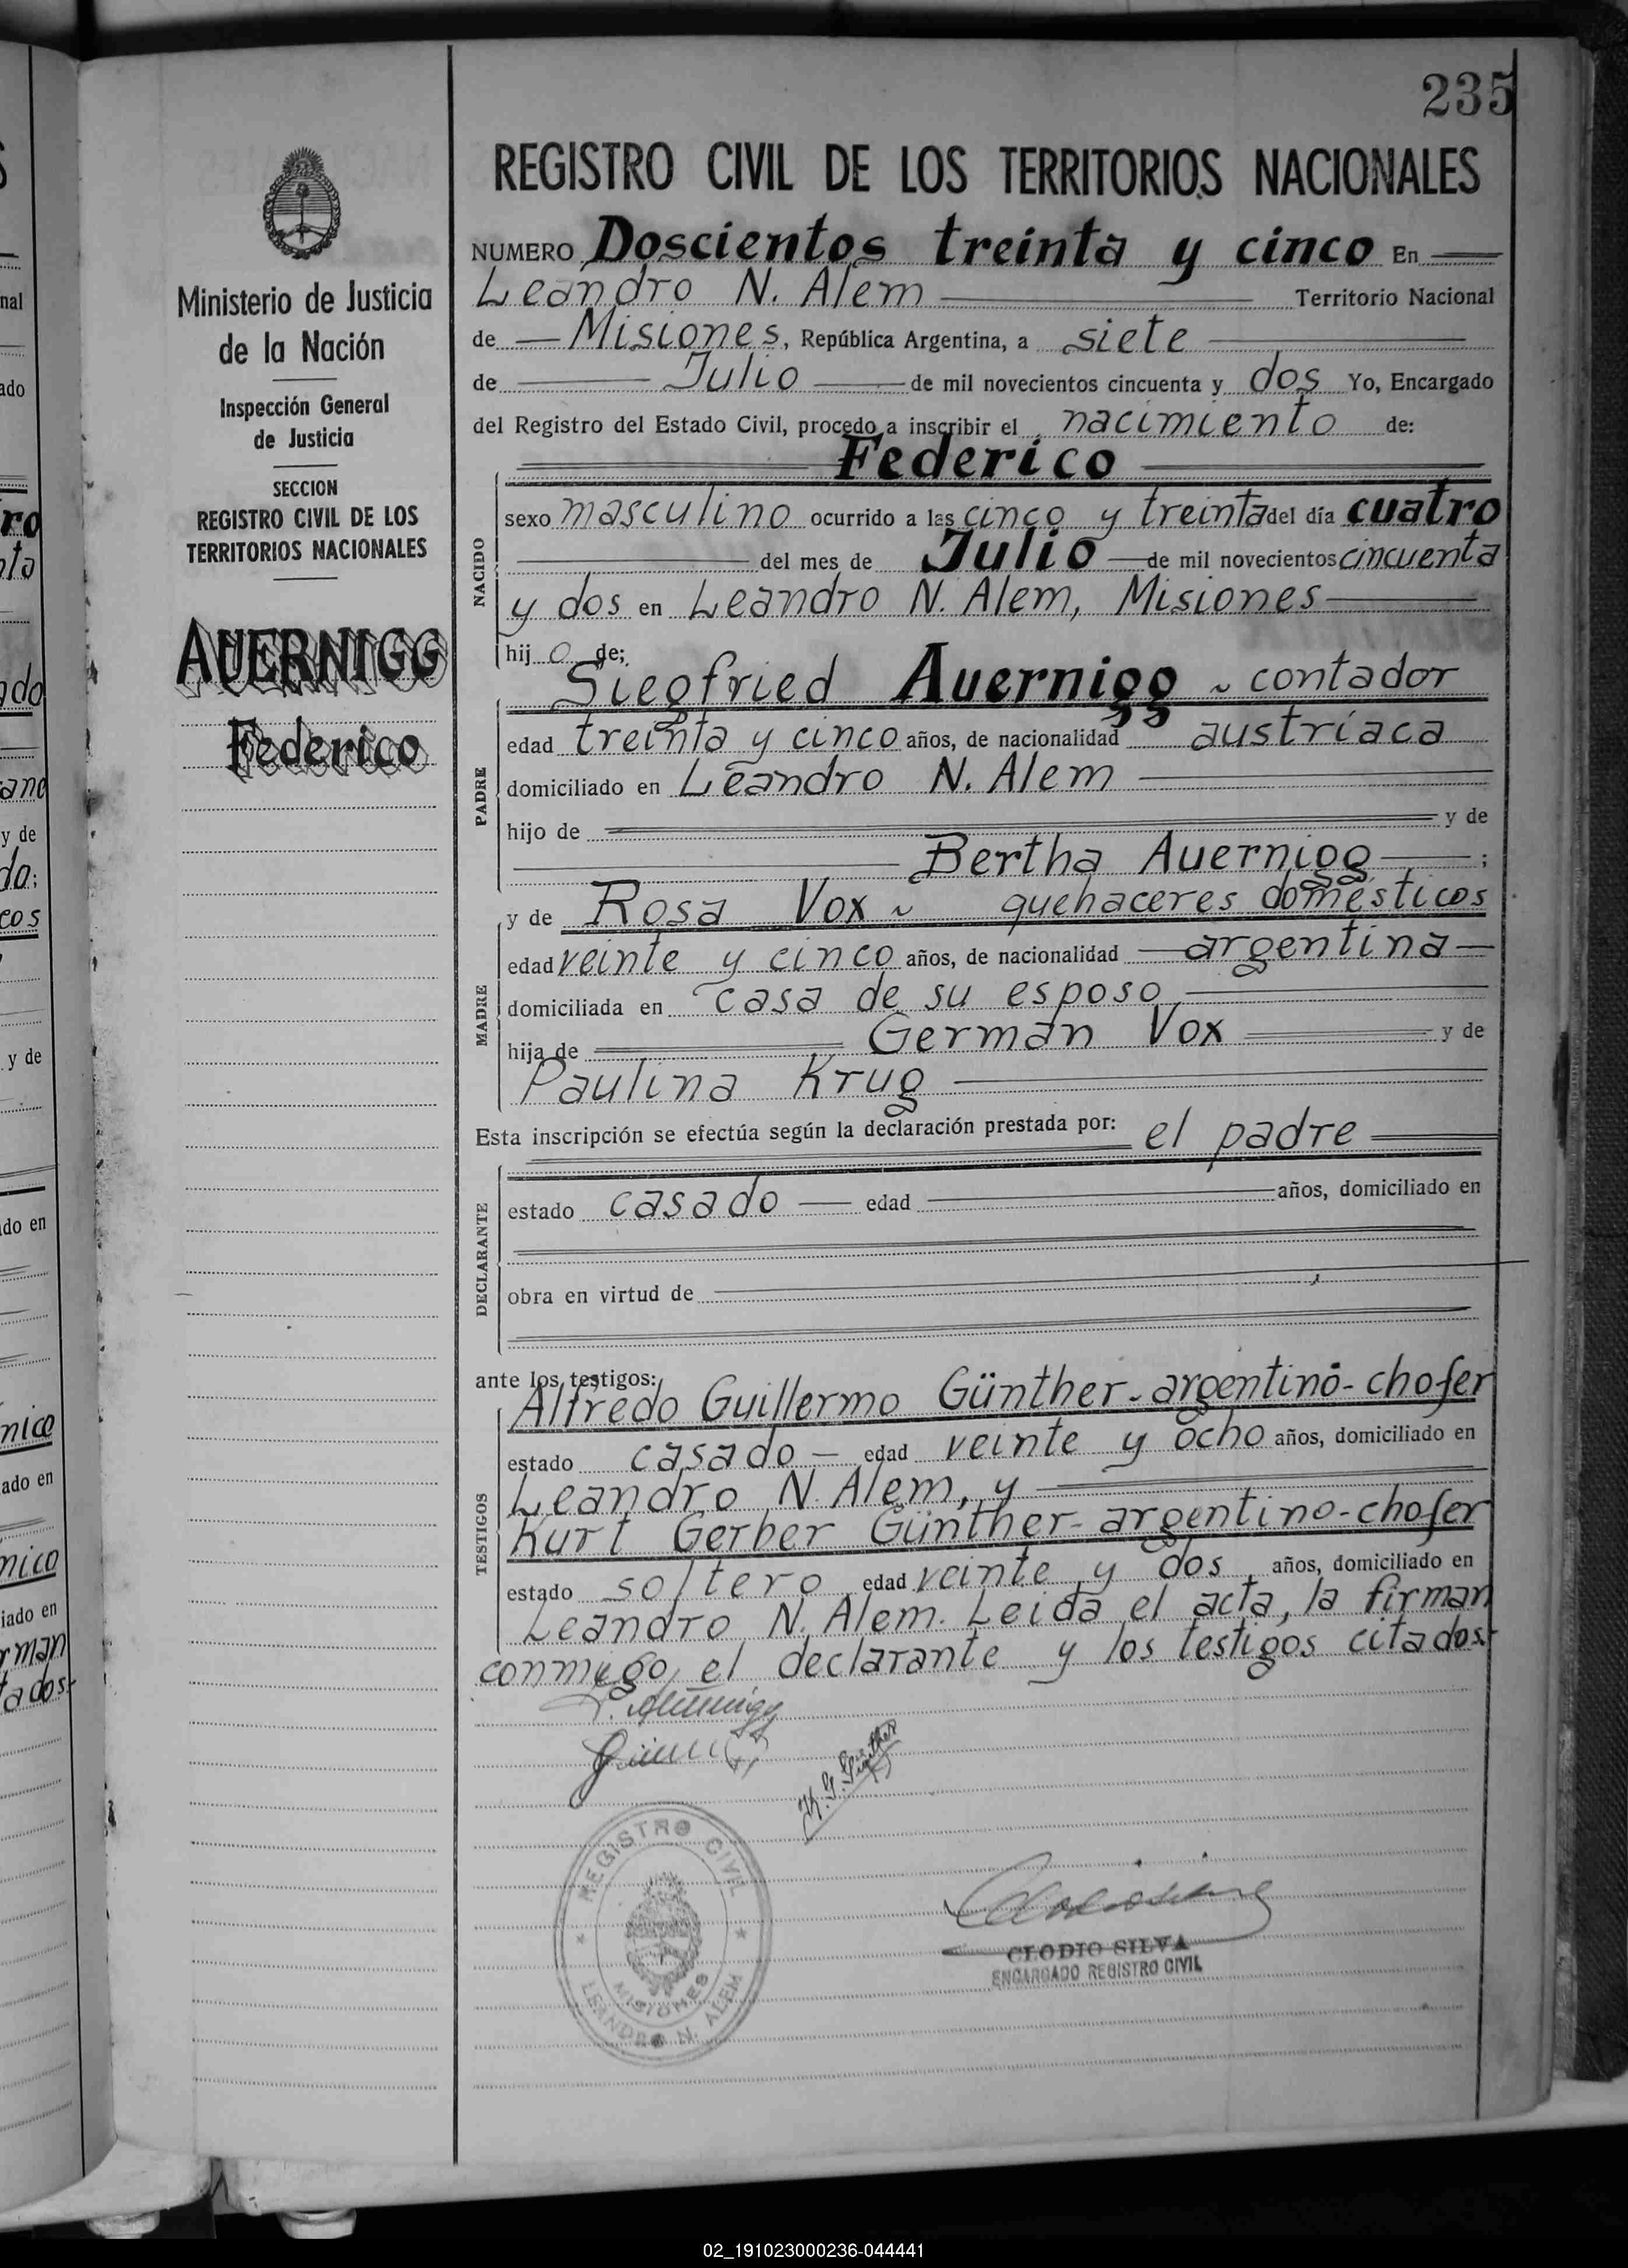 235
REGISTRO CIVIL DE LOS TERRITORIOS NACIONALES
Ministerio de Justicia
de la Nación
Inspección General
de Justicia
SECCION
REGISTRO CIVIL DE LOS
TERRITORIOS NACIONALES
AUERNIGG
Federico
NUMERO Doscientos treinta y cinco En
Leandro N. Alem Territorio Nacional
de Misiones, República Argentina, a siete
de Julio de mil novecientos cincuenta y dos Yo, Encargado
del Registro del Estado Civil, procedo a inscribir el nacimiento de:
Federico
NACIDO
sexo masculino ocurrido a las cinco y treinta del día cuatro
del mes de Julio de mil novecientos cincuenta
y dos en Leandro N. Alem, Misiones
hijo de;
Siegfried Auernigg ~ contador
PADRE
edad treinta y cinco años, de nacionalidad austríaca
domiciliado en Leandro N. Alem
hijo de y de
Bertha Auernigg ;
y de Rosa Vox ~ quehaceres domésticos
MADRE
edad veinte y cinco años, de nacionalidad argentina
domiciliada en casa de su esposo
hija de Germán Vox y de
Paulina Krug
Esta inscripción se efectúa según la declaración prestada por: el padre
DECLARANTE
estado casado edad años, domiciliado en
obra en virtud de
ante los testigos:
Alfredo Guillermo Günther - argentino - chofer
TESTIGOS
estado casado edad veinte y ocho años, domiciliado en
Leandro N. Alem, y
Kurt Gerber Günther - argentino - chofer
estado soltero edad veinte y dos años, domiciliado en
Leandro N. Alem. Leida el acta, la firman
conmigo, el declarante y los testigos citados.-
K. G. Günther
REGISTRO CIVIL
MISIONES
LEANDRO N. ALEM
CLODIO SILVA
ENCARGADO REGISTRO CIVIL
02_191023000236-044441